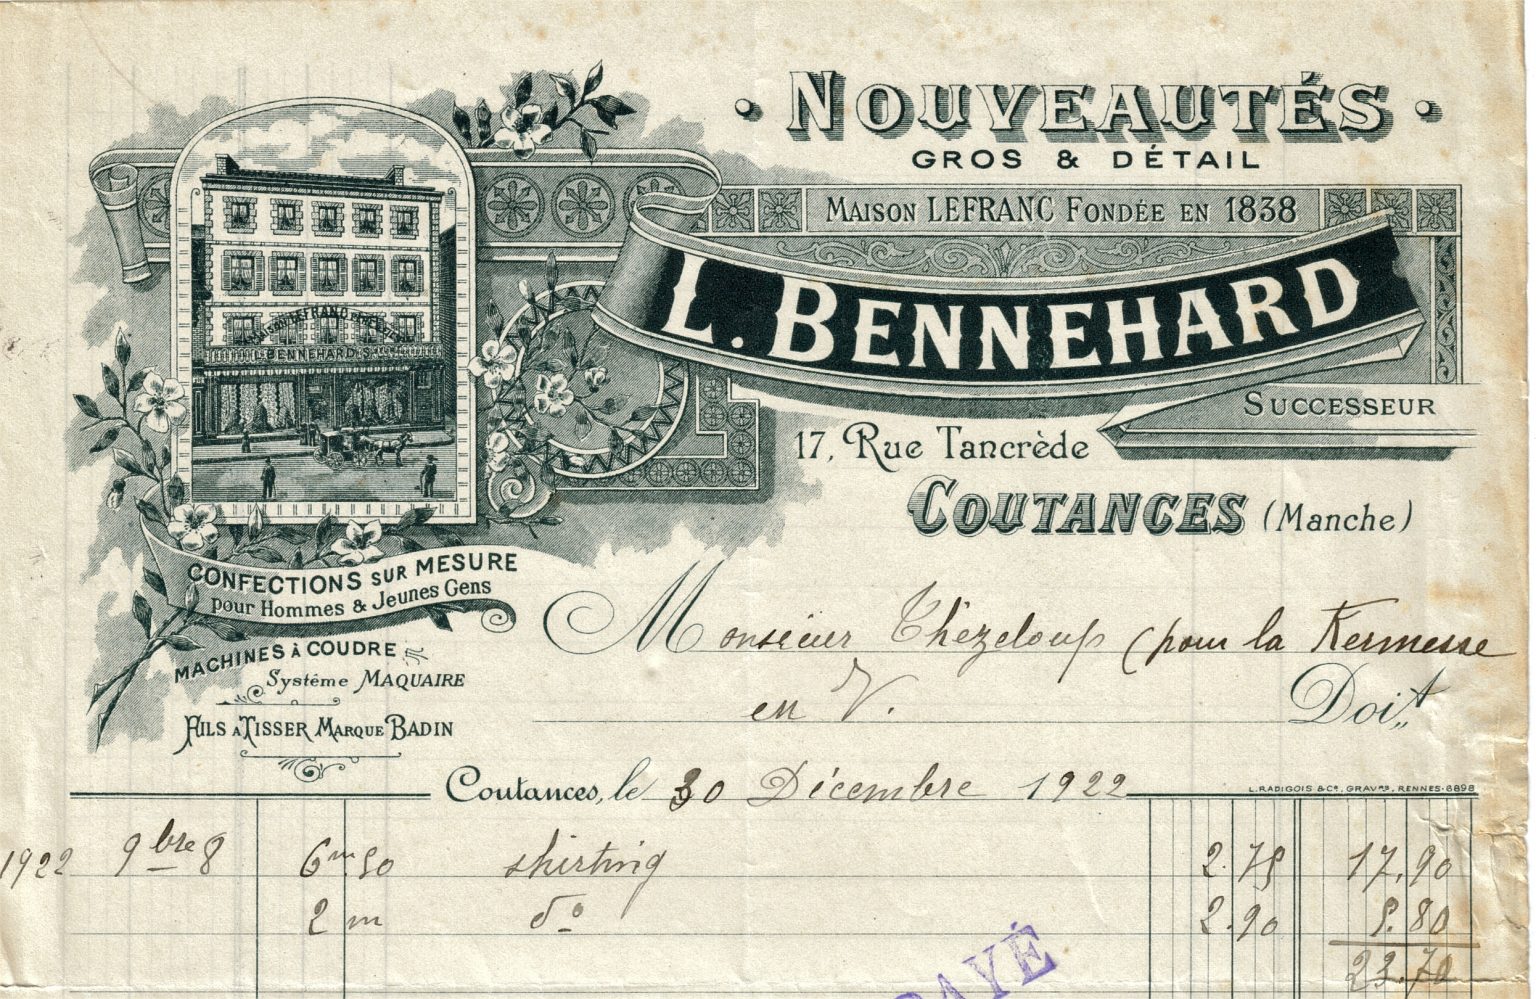 NOUVEAUTÉS
GROS & DÉTAIL
MAISON LEFRANC FONDÉE EN 1838
L. BENNEHARD
SUCCESSEUR
17, Rue Tancrède
COUTANCES (Manche)
MAISON LEFRANC
L. BENNEHARD SR
CONFECTIONS SUR MESURE
pour Hommes & Jeunes Gens
MACHINES À COUDRE
Système MAQUAIRE
FILS A TISSER MARQUE BADIN
Monsieur Thézeloup (pour la Kermesse
en V. Doit
Coutances, le 30 Décembre 1922
L. RADIGOIS & Cie, GRAVrs, RENNES-8898
1922 9bre 8 6m.50 shirting 2.75 17,90
2 m do 2.90 5.80
23.70
PAYÉ